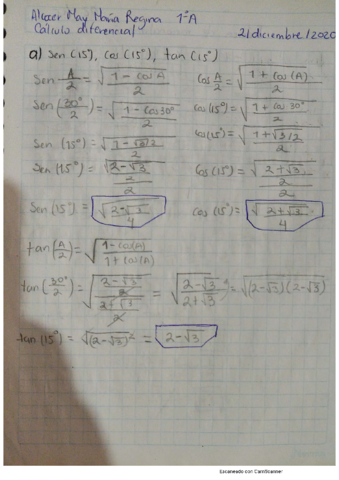 Alcocer May María Regina 1°A
Cálculo diferencial 2/diciembre/2020
a) Sen (15°), cos (15°), tan (15°)
Sen A/2 = √(1 - cos A / 2) cos A/2 = √(1 + cos (A) / 2)
Sen (30°/2) = √(1 - cos 30° / 2) cos (15°) = √(1 + cos 30° / 2)
Sen (15°) = √(1 - √3/2 / 2) cos (15°) = √(1 + √3/2 / 2)
Sen (15°) = √(2 - √3 / 2 / 2) Cos (15°) = √(2 + √3 / 2 / 2)
Sen (15°) = √(2 - √3 / 4) cos (15°) = √(2 + √3 / 4)
tan (A/2) = √(1 - cos(A) / 1 + cos(A))
tan (30°/2) = √(2 - √3 / 2 / 2 + √3 / 2) = √(2 - √3 / 2 + √3) = √(2 - √3)(2 - √3)
tan (15°) = √(2 - √3)² = 2 - √3
Escaneado con CamScanner